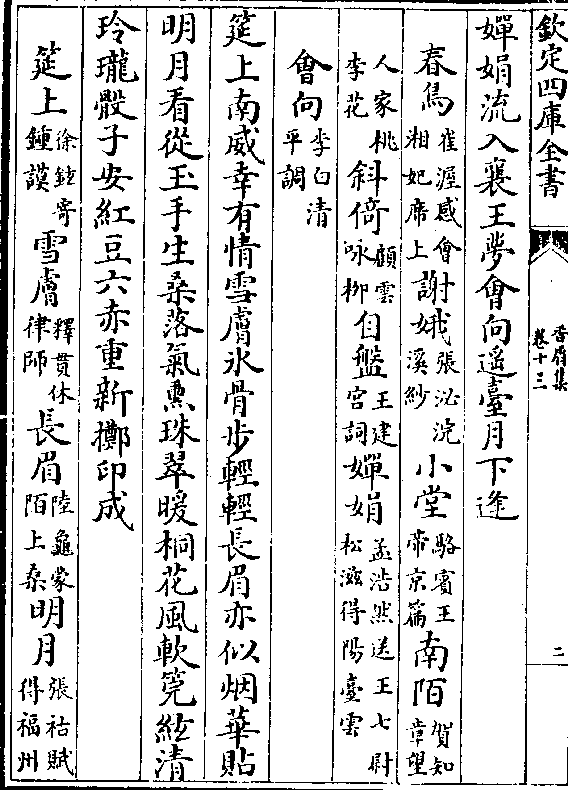 欽定四庫全書
香屑集
卷十三
二
嬋娟流入襄王夢會向遙臺月下逢
春鳥崔渥感會湘妃席上謝娥張泌浣溪紗小堂駱賓王帝京篇南陌賀知章望
人家桃李花斜倚顧雲咏柳自盤王建宮詞嬋娟孟浩然送王七尉松滋得陽臺雲
會向李白清平調
筵上南威幸有情雪膚氷骨步輕輕長眉亦似烟華貼
明月看從玉手生桑落氣熏珠翠暖桐花風軟筦絃清
玲瓏骰子安紅豆六赤重新擲印成
筵上徐鉉寄鍾謨雪膚釋貫休律師長眉陸龜蒙陌上桑明月張祜賦得福州